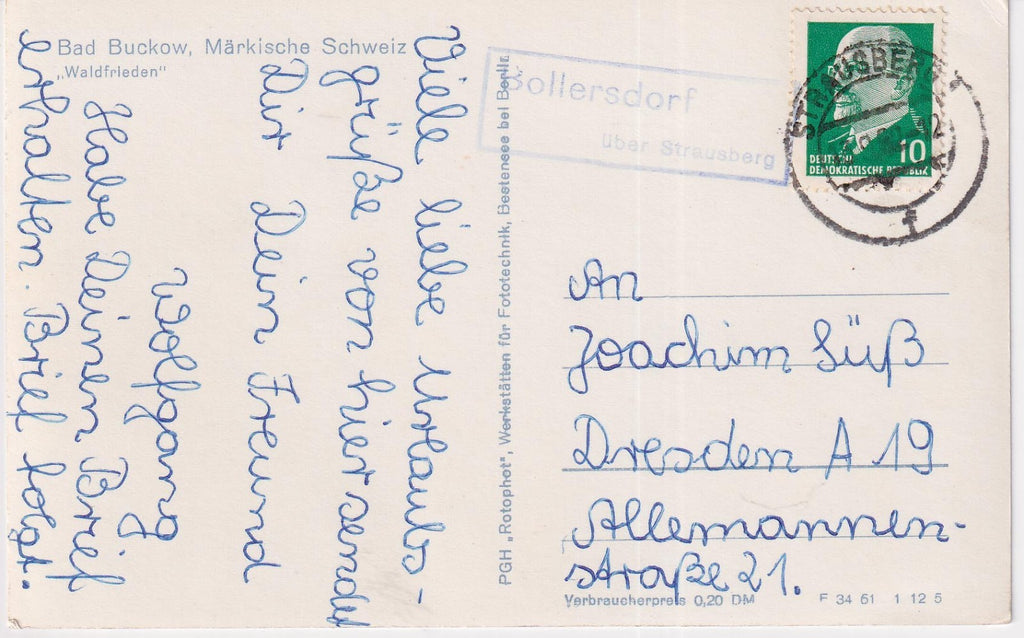 Bad Buckow, Märkische Schweiz
„Waldfrieden"
Viele liebe Urlaubs-
grüße von hier sendet
Dir Dein Freund
Wolfgang
Habe Deinen Brief
erhalten. Brief folgt.
PGH „Rotophot", Werkstätten für Fototechnik, Bestensee bei Berlin
Bollersdorf
über Strausberg
STRAUSBERG
f
10
DEUTSCHE
DEMOKRATISCHE REPUBLIK
An
Joachim Süß
Dresden A 19
Allemannen-
straße 21.
Verbraucherpreis 0,20 DM F 34 61 1 12 5